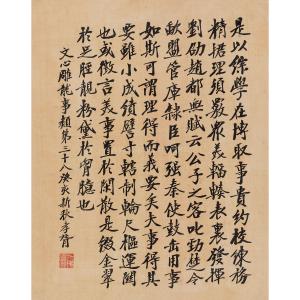 是以綜學在博取事貴約校練務
精捃理須覈衆美輻輳表裏發揮
劉劭趙都賦云公子之客叱勁楚令
歃盟管庫隸臣呵強秦使鼓缶用事
如斯可謂理得而義要矣故事得其
要雖小成績譬寸轄制輪尺樞運關
也或微言美事置於閑散是綴金翠
於足脛靚粉黛於胷臆也
文心雕龍事類第三十八癸亥新秋孝胥